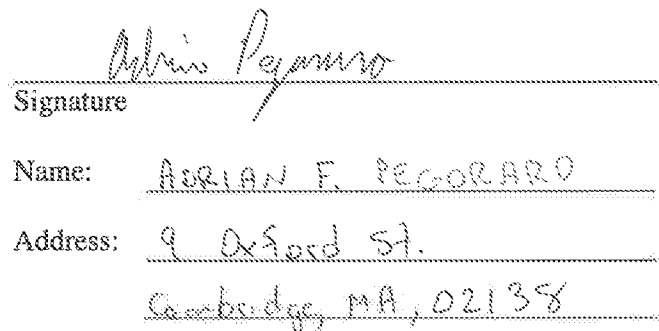 Adrian Pegoraro
Signature
Name: ADRIAN F. PEGORARO
Address: 9 Oxford St.
Cambridge, MA, 02138